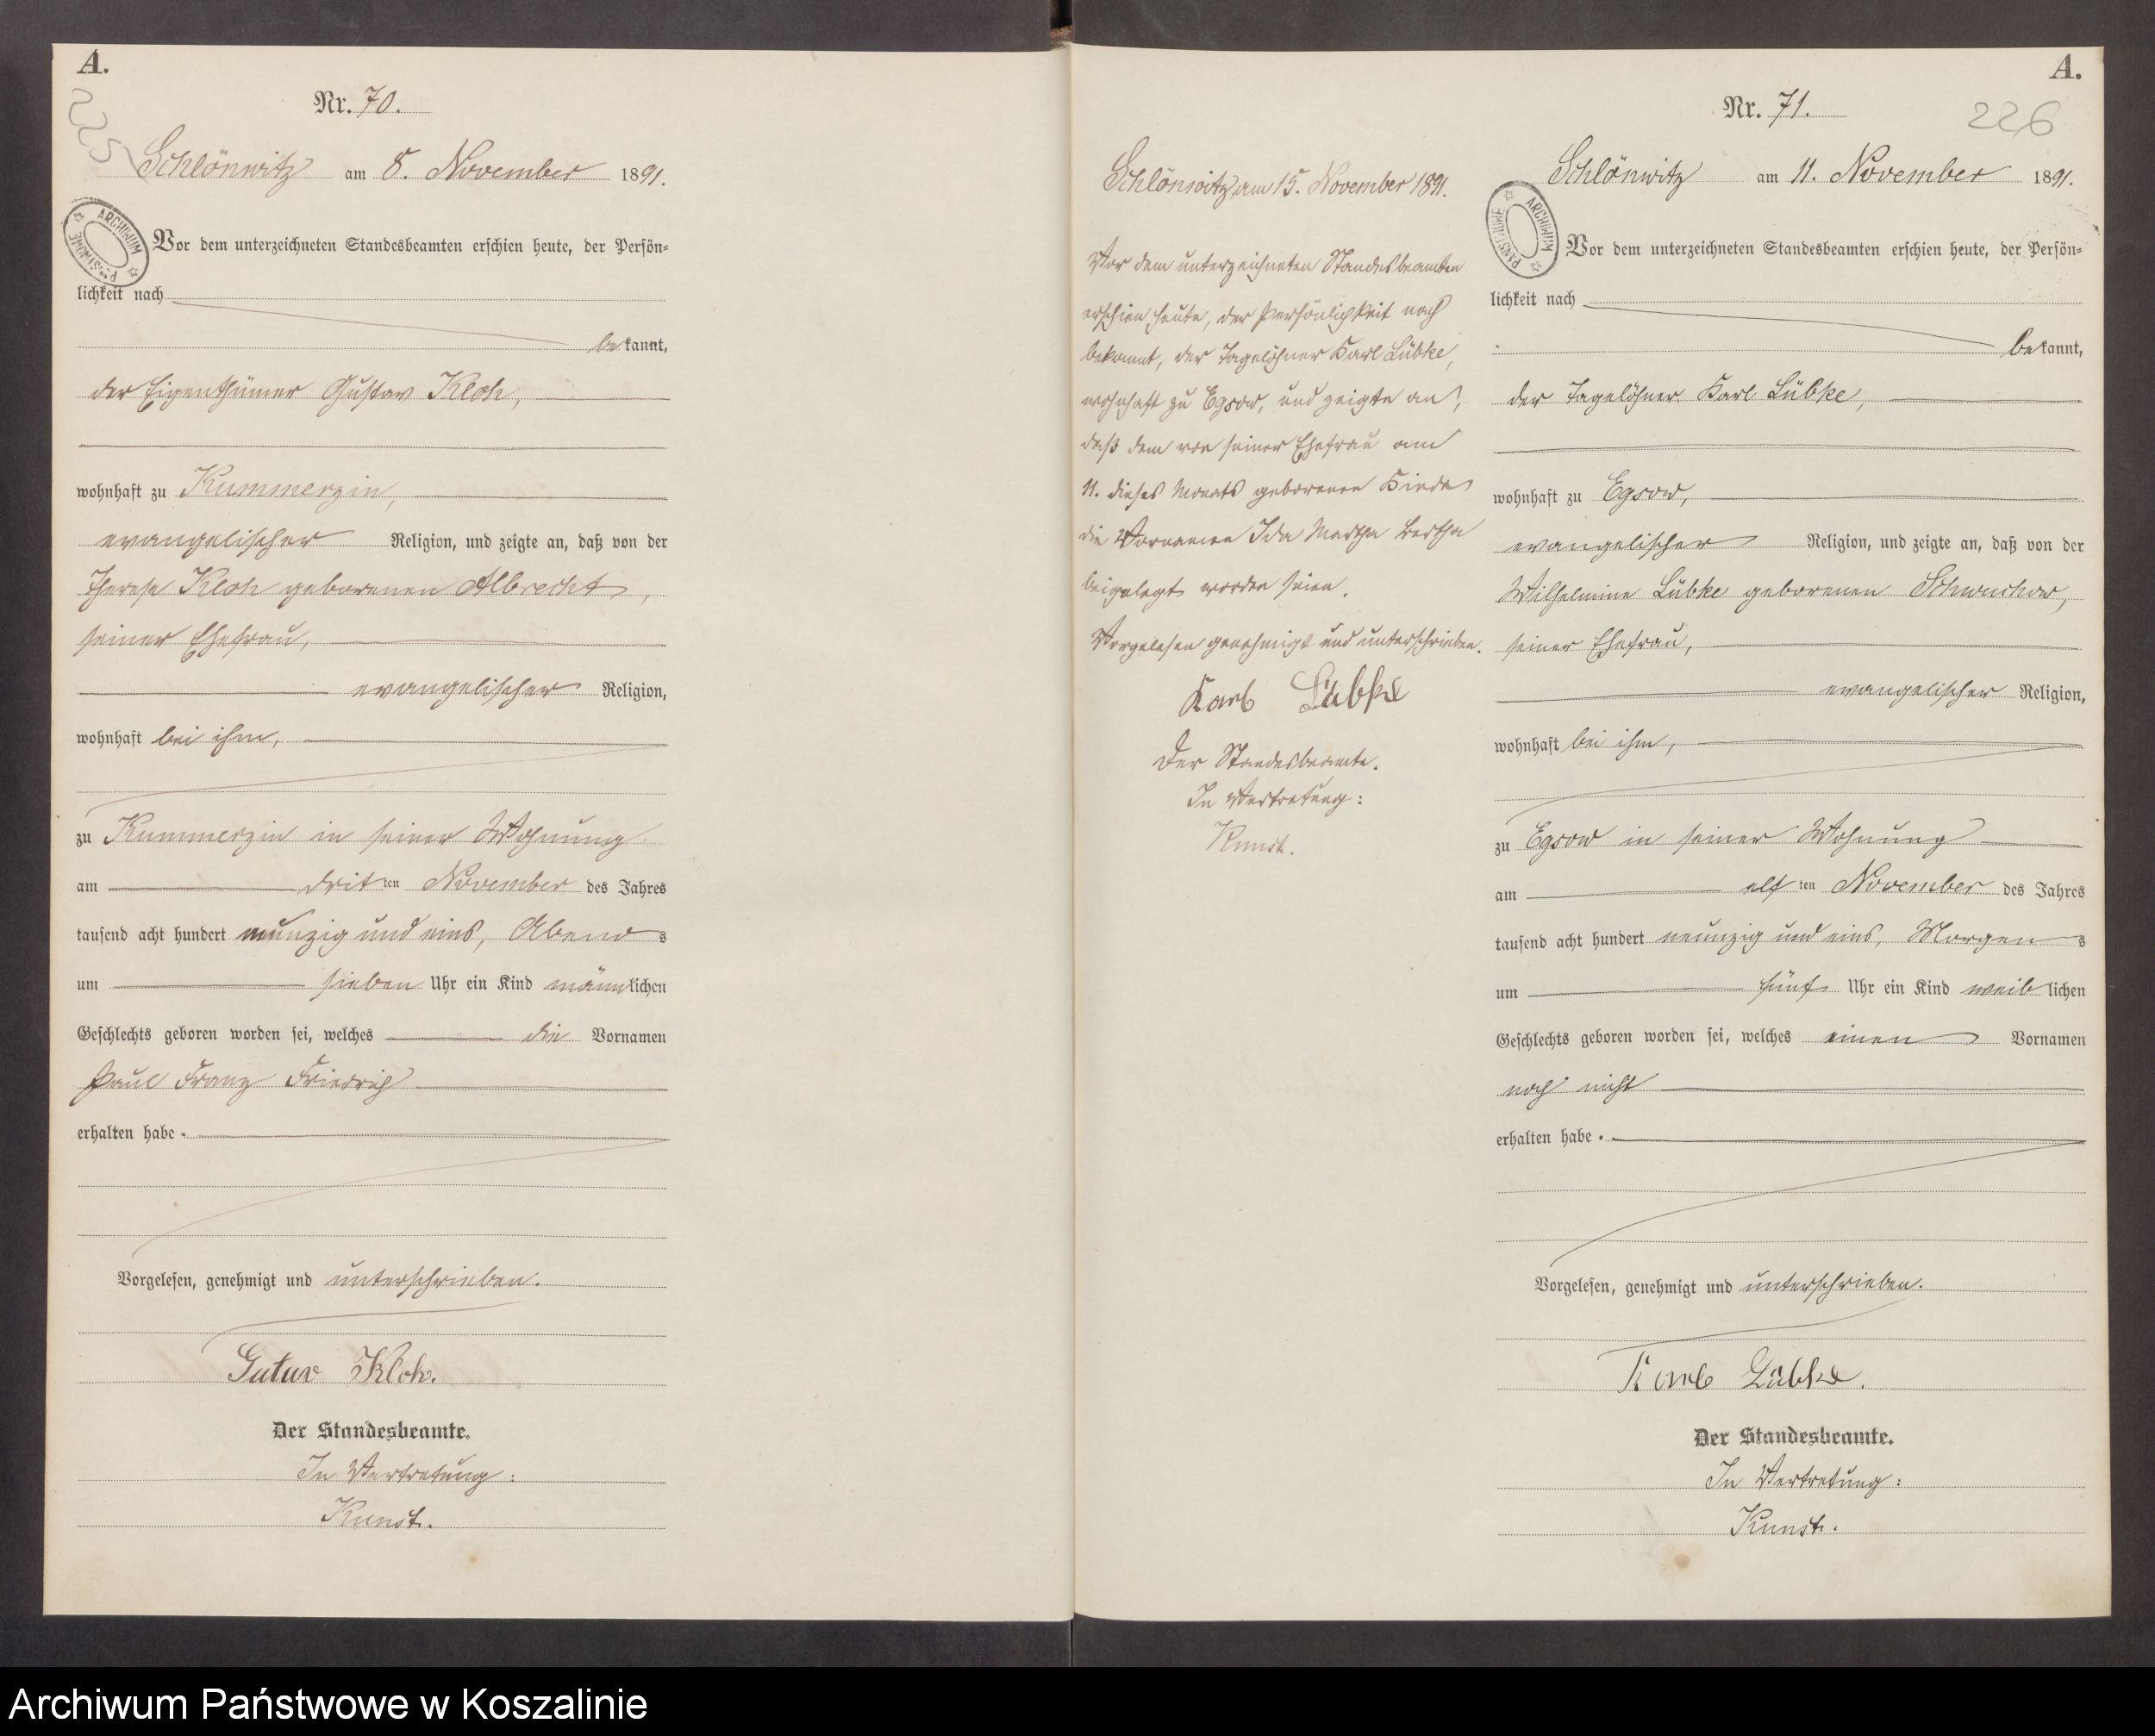 A.
225
Nr. 70.
Schlönwitz am 8. November 1891.
ARCHIWUM PAŃSTWOWE
Vor dem unterzeichneten Standesbeamten erschien heute, der Persön-
lichkeit nach
bekannt,
der Eigenthümer Gustav Kloh,
wohnhaft zu Kummerzin,
evangelischer Religion, und zeigte an, daß von der
Therese Kloh geborenen Albrecht,
seiner Ehefrau,
evangelischer Religion,
wohnhaft bei ihm,
zu Kummerzin in seiner Wohnung
am dritten November des Jahres
tausend acht hundert neunzig und eins, Abends
um sieben Uhr ein Kind männlichen
Geschlechts geboren worden sei, welches die Vornamen
Paul Franz Friedrich
erhalten habe.
Vorgelesen, genehmigt und unterschrieben.
Gutav Kloh.
Der Standesbeamte.
In Vertretung:
Kunst.
Schlönwitz am 15. November 1891.
Vor dem unterzeichneten Standesbeamten
erschien heute, der Persönlichkeit nach
bekannt, der Tagelöhner Karl Lübke,
wohnhaft zu Egsow, und zeigte an,
daß dem von seiner Ehefrau am
11. dieses Monats geborenen Kinde
die Vornamen Ida Martha Bertha
beigelegt worden seien.
Vorgelesen genehmigt und unterschrieben.
Karl Lübke
Der Standesbeamte.
In Vertretung:
Kunst.
A.
226
Nr. 71.
Schlönwitz am 11. November 1891.
ARCHIWUM PAŃSTWOWE
Vor dem unterzeichneten Standesbeamten erschien heute, der Persön-
lichkeit nach
bekannt,
der Tagelöhner Karl Lübke,
wohnhaft zu Egsow,
evangelischer Religion, und zeigte an, daß von der
Wilhelmine Lübke geborenen
seiner Ehefrau,
evangelischer Religion,
wohnhaft bei ihm,
zu Egsow in seiner Wohnung
am elften November des Jahres
tausend acht hundert neunzig und eins, Morgens
um fünf Uhr ein Kind weiblichen
Geschlechts geboren worden sei, welches einen Vornamen
noch nicht
erhalten habe.
Vorgelesen, genehmigt und unterschrieben.
Karl Lübke.
Der Standesbeamte.
In Vertretung:
Kunst.
Archiwum Państwowe w Koszalinie